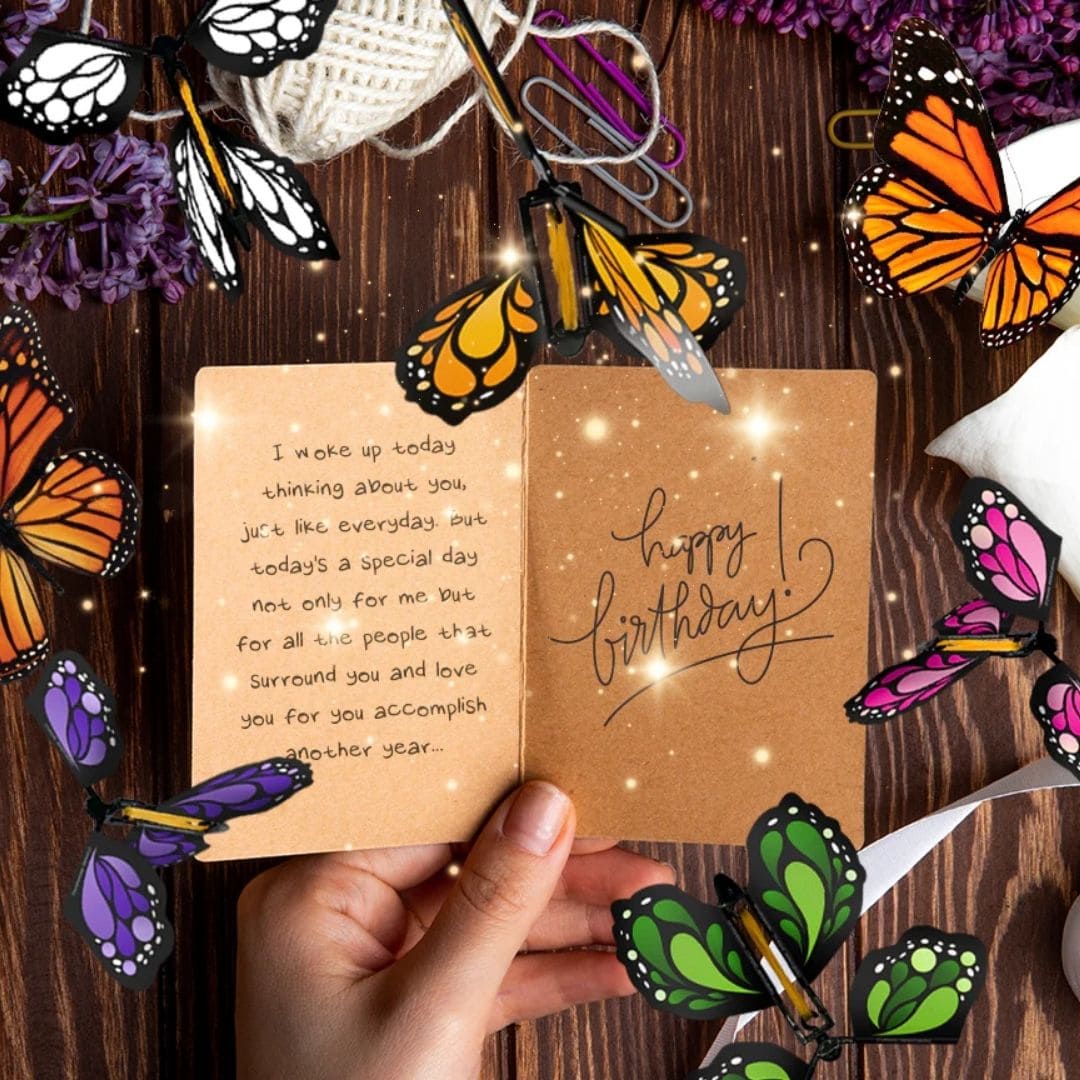 I woke up today
thinking about you,
just like everyday. But
today's a special day
not only for me but
for all the people that
surround you and love
you for you accomplish
another year...
happy
birthday!